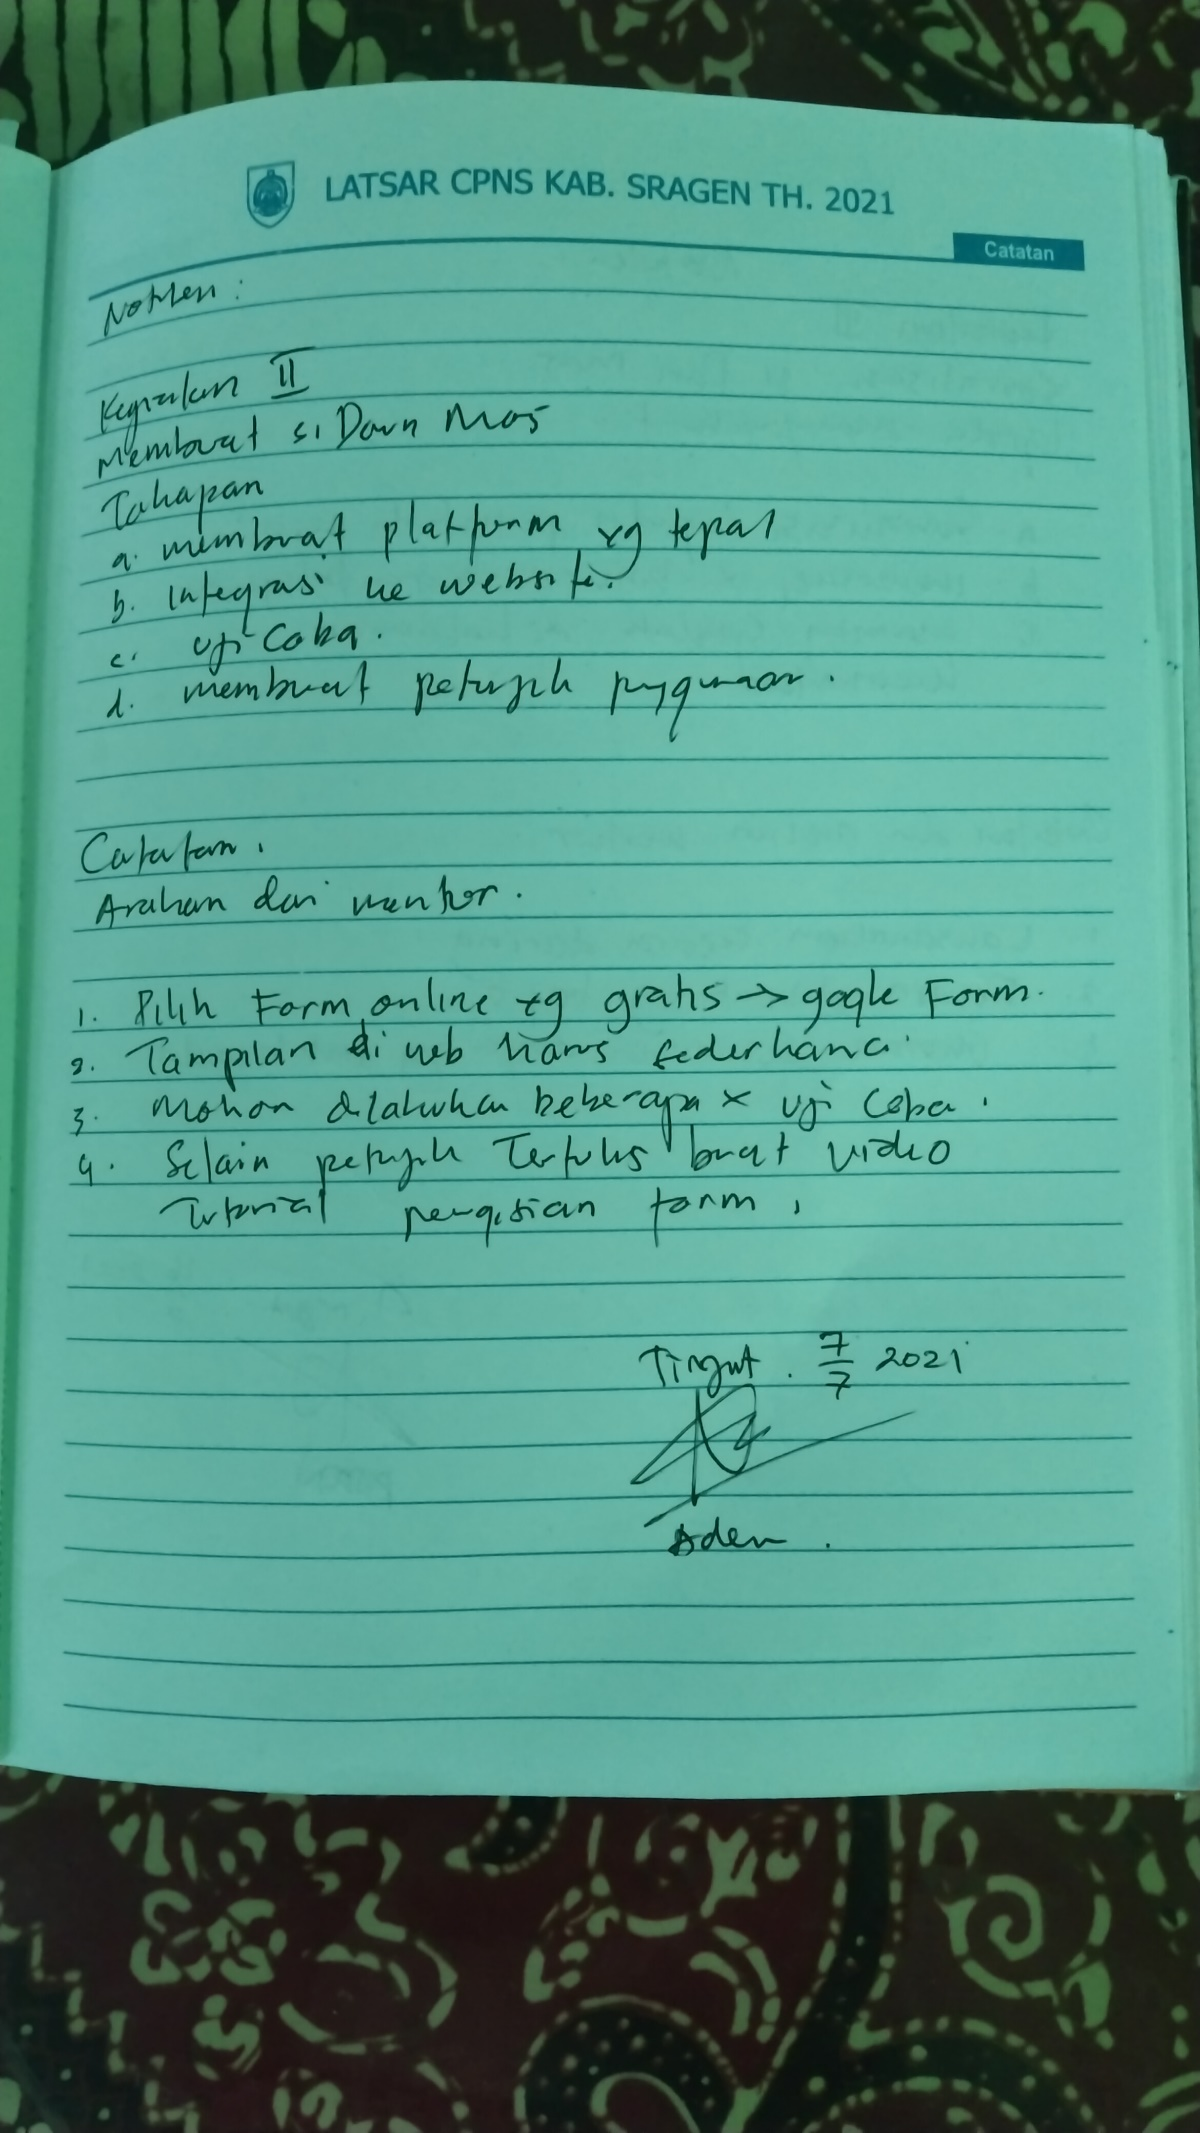 LATSAR CPNS KAB. SRAGEN TH. 2021
Catatan
Notulen :
Kegiatan II
Membuat si Daun Mas
Tahapan
a. membuat platform yg tepat
b. Integrasi ke website.
c. uji coba.
d. membuat petunjuk penggunaan.
Catatan.
Arahan dari mentor.
1. Pilih Form online yg gratis → google Form.
2. Tampilan di web harus sederhana.
3. Mohon dilakukan beberapa x uji coba.
4. Selain petunjuk Tertulis buat video
Tutorial pengisian form,
7/7 2021
Aden.